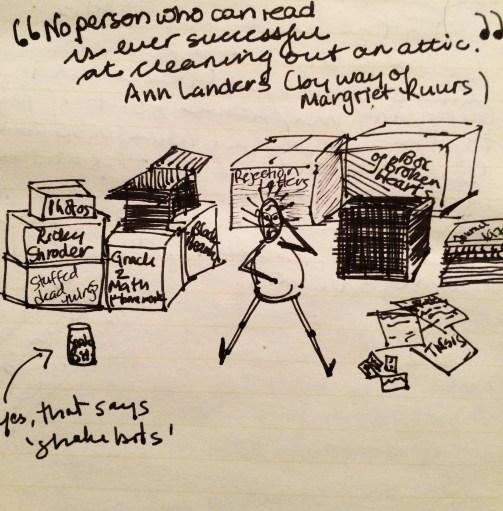 “No person who can read
is ever successful
at cleaning out an attic.”
Ann Landers (by way of
Margriet Ruurs)
Photos
Ricky
Shroder
Stuffed
dead things
Grade
2
Math
Homework
Black
Rejection
Letters
Box
of Broken
Hearts
Yes, that says
'snake bits'